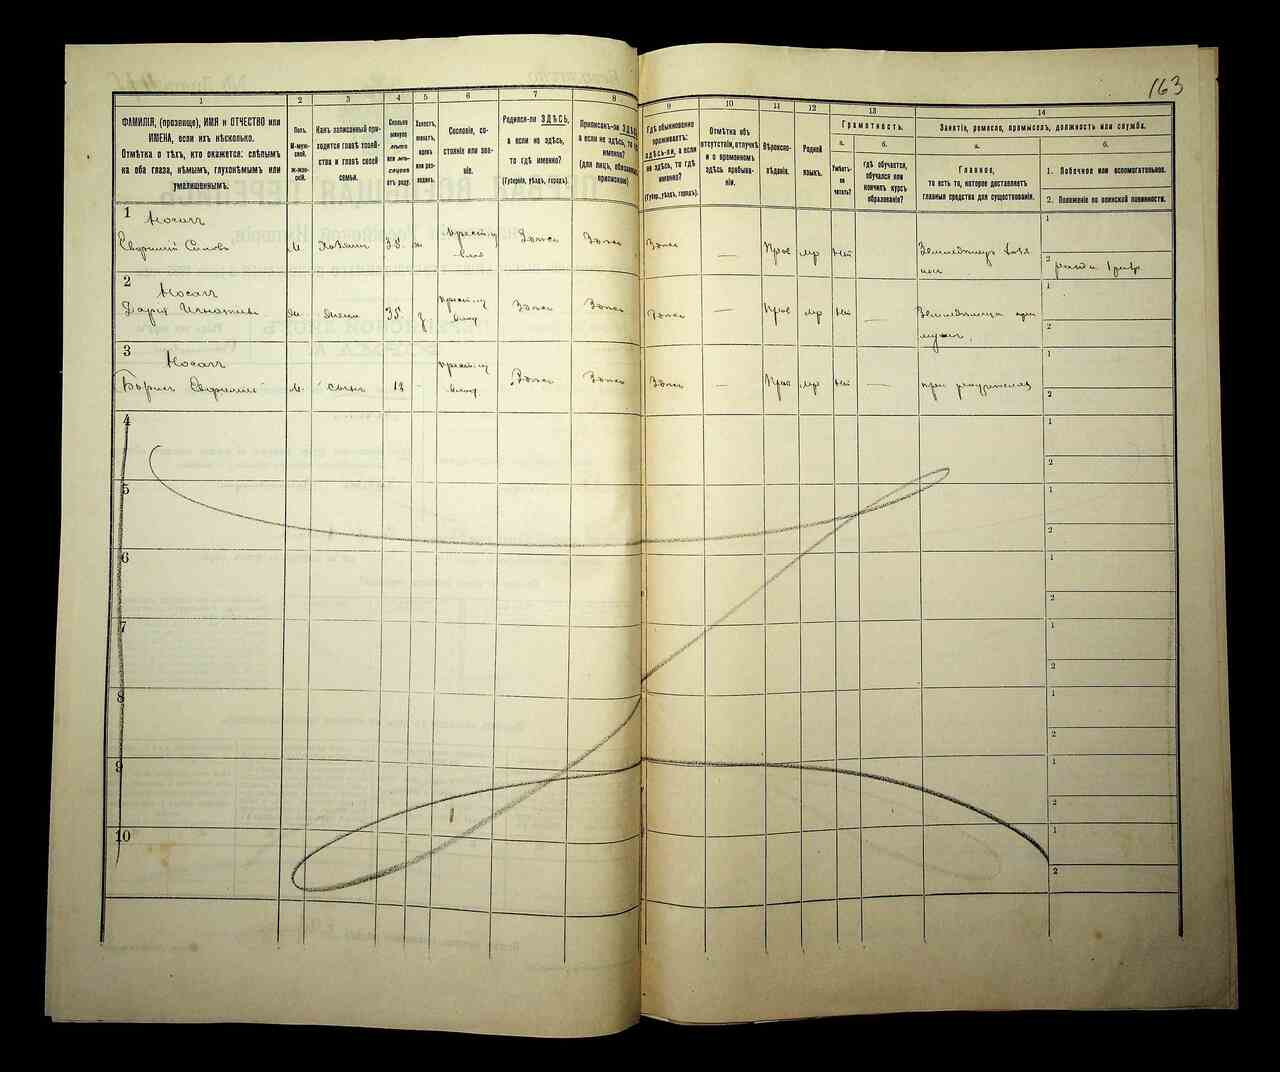 163
1
2
3
4
5
6
7
8
9
10
11
12
13
14
ФАМИЛІЯ, (прозвище), ИМЯ и ОТЧЕСТВО или
ИМЕНА, если ихъ нѣсколько.
Отмѣтка о тѣхъ, кто окажется: слѣпымъ
на оба глаза, нѣмымъ, глухонѣмымъ или
умалишеннымъ.
Полъ.
М-муж-
ской.
Ж-жен-
скій.
Какъ записанный при-
ходится главѣ хозяй-
ства и главѣ своей
семьи.
Сколько
минуло
лѣтъ
или мѣ-
сяцевъ
отъ роду.
Холостъ,
женатъ,
вдовъ
или раз-
веденъ.
Сословіе, со-
стояніе или зва-
ніе.
Родился-ли ЗДѢСЬ,
а если не здѣсь,
то гдѣ именно?
(Губернія, уѣздъ, городъ).
Приписанъ-ли ЗДѢСЬ,
а если не здѣсь, то гдѣ
именно?
(для лицъ, обязанныхъ
припискою)
Гдѣ обыкновенно
проживаетъ:
здѣсь-ли, а если
не здѣсь, то гдѣ
именно?
(Губер., уѣздъ, городъ).
Отмѣтка объ
отсутствіи, отлучкѣ
и о временномъ
здѣсь пребыва-
ніи.
Вѣроиспо-
вѣданіе.
Родной
языкъ.
Грамотность.
а.
б.
Умѣетъ-
ли
читать?
гдѣ обучается,
обучался или
кончилъ курсъ
образованія?
Занятіе, ремесло, промыселъ, должность или служба.
а.
б.
Главное,
то есть то, которое доставляетъ
главныя средства для существованія.
1. Побочное или вспомогательное.
2. Положеніе по воинской повинности.
1 Носачъ
М Хозяинъ 35 ж Здѣсь Здѣсь Здѣсь — Прав мр Нѣт
1
2
2 Носачъ
Дарія ж жена 35 Здѣсь Здѣсь Здѣсь — Прав мр Нѣт —
1
2
3 Носачъ
Борисъ М. сынъ Здѣсь Здѣсь Здѣсь — Прав мр Нѣт — при родителяхъ
1
2
4
1
2
5
1
2
6
1
2
7
1
2
8
1
2
9
1
2
10
1
2